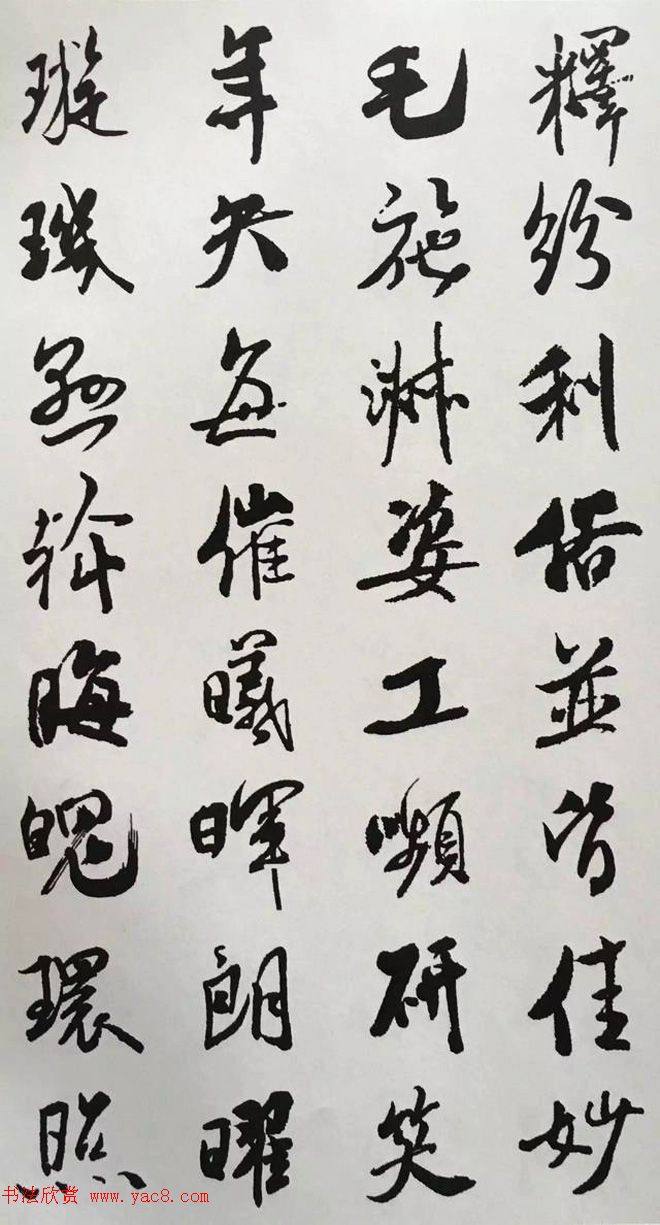 釋紛利俗並皆佳妙
毛施淑姿工嚬研笑
年矢每催曦暉朗曜
璇璣懸斡晦魄環照
书法欣赏 www.yac8.com